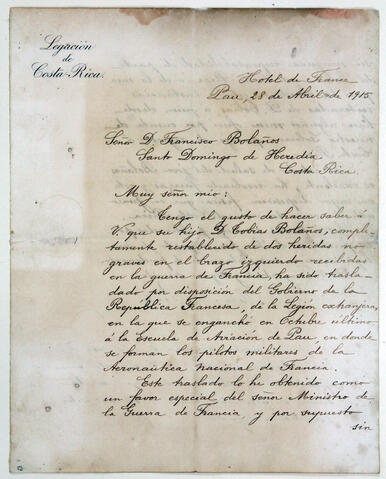 Legación
de
Costa-Rica.
Hotel de France
Pau, 28 de Abril de 1915
Señor D. Francisco Bolaños
Santo Domingo de Heredia
Costa Rica.
Muy señor mio:
Tengo el gusto de hacer saber á
V. que su hijo D. Tobias Bolaños, comple-
tamente restablecido de dos heridas no
graves en el brazo izquierdo recibidas
en la guerra de Francia, ha sido trasla-
dado por disposición del Gobierno de la
República Francesa, de la Legión extranjera,
en la que se enganchó en Octubre último
á la Escuela de Aviación de Pau, en donde
se forman los pilotos militares de la
Aeronáutica Nacional de Francia.
Este traslado lo he obtenido como
un favor especial del señor Ministro de
la Guerra de Francia, y por supuesto
sin